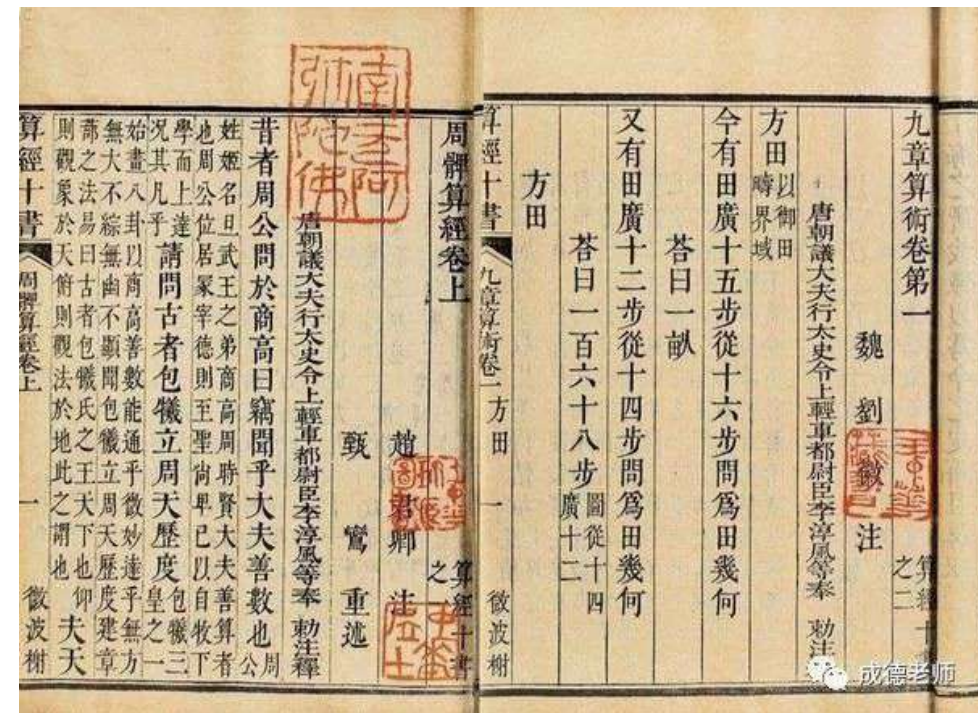 九章算術卷第一
算經十書之二
魏 劉徽 注
唐朝議大夫行太史令上輕車都尉臣李淳風等奉 勅注
方田以御田疇界域
今有田廣十五步從十六步問爲田幾何
荅曰一畝
又有田廣十二步從十四步問爲田幾何
荅曰一百六十八步圖從十四廣十二
方田
算經十書 九章算術卷一 方田 一 微波榭
周髀算經卷上
算經十書之
趙君卿 注
甄鸞 重述
唐朝議大夫行太史令上輕車都尉臣李淳風等奉 勅注釋
昔者周公問於商高曰竊聞乎大夫善數也周公
姓姬名旦武王之弟商高周時賢大夫善算者
也周公位居冢宰德則至聖尚卑己以自牧下
學而上達況其凡乎請問古者包犧立周天歷度包犧三皇之一
始畫八卦以商高善數能通乎微妙達乎無方
無大不綜無幽不顯聞包犧立周天歷度建章
蔀之法易曰古者包犧氏之王天下也仰
則觀象於天俯則觀法於地此之謂也夫天
算經十書 周髀算經卷上 一 微波榭
南無阿彌陀佛
成德老师